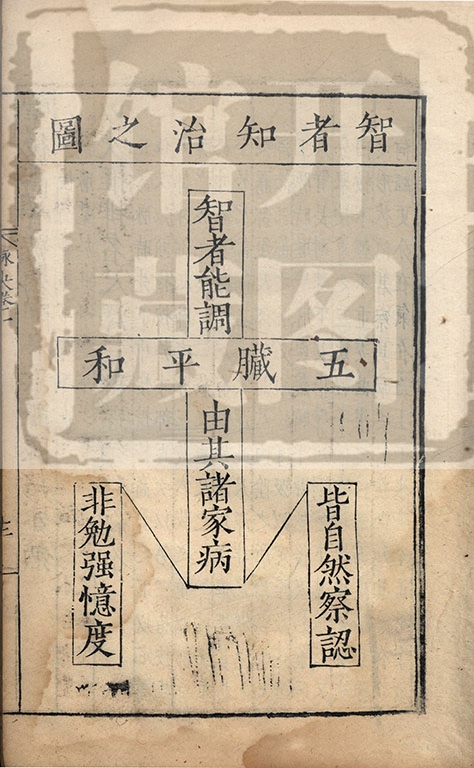 智者知治之圖
智者能調
五臟平和
由其諸家病
皆自然察認
非勉强憶度